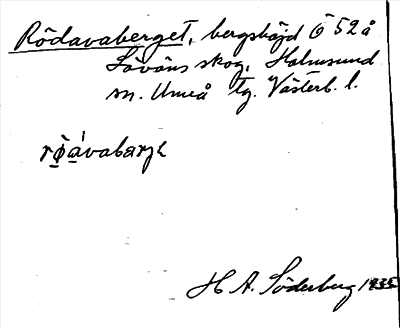 Rödavaberget, bergshöjd Ö 52 å
Lövöns skog, Holmsund
sn. Umeå tg. Västerb. l.
H A. Söderberg 1935